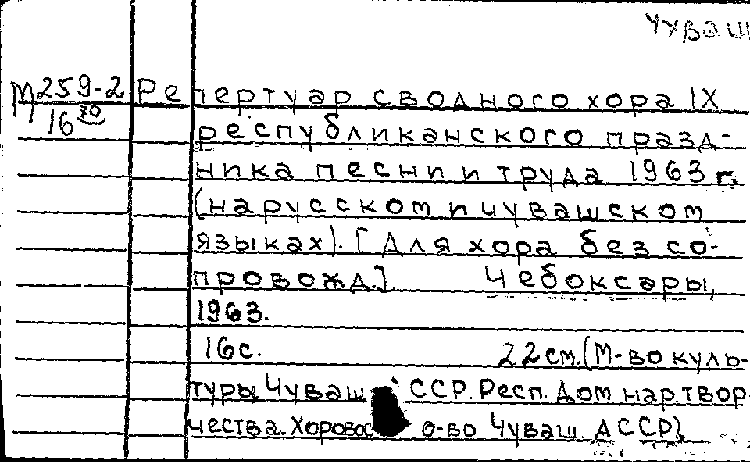 чуваш
М 259-2 Репертуар сводного хора IX
16 30 республиканского празд-
ника песни и труда 1963 г.
(на русском и чувашском
языках). [Для хора без со-
провожд.] Чебоксары,
1963.
16 с. 22 см. (М-во куль-
туры Чуваш СССР. Респ. Дом нар. твор-
чества. Хоровое о-во Чуваш. АССР).